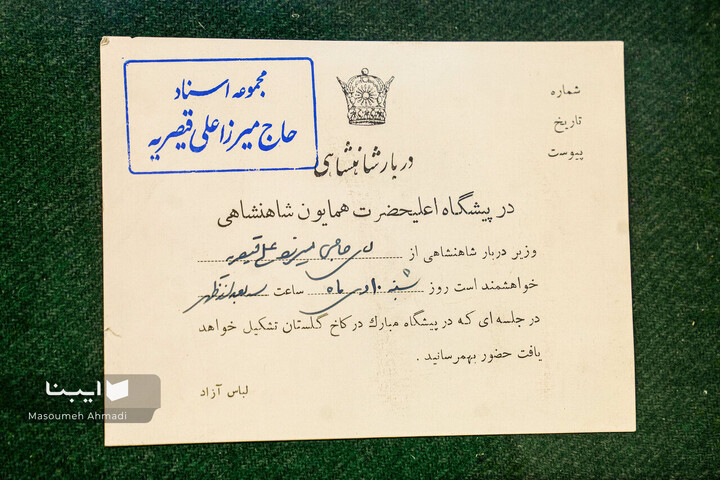 مجموعه اسناد
حاج میرزا علی قیصریه
شماره
تاریخ
پیوست
دربار شاهنشاهی
در پیشگاه اعلیحضرت همایون شاهنشاهی
وزیر دربار شاهنشاهی از آقای حاجی میرزا علی قیصریه
خواهشمند است روز شنبه ۱۰ دی ماه ساعت سه بعد از ظهر
در جلسه ای که در پیشگاه مبارك در کاخ گلستان تشکیل خواهد
یافت حضور بهمرسانید .
لباس آزاد
ایبنا
Masoumeh Ahmadi